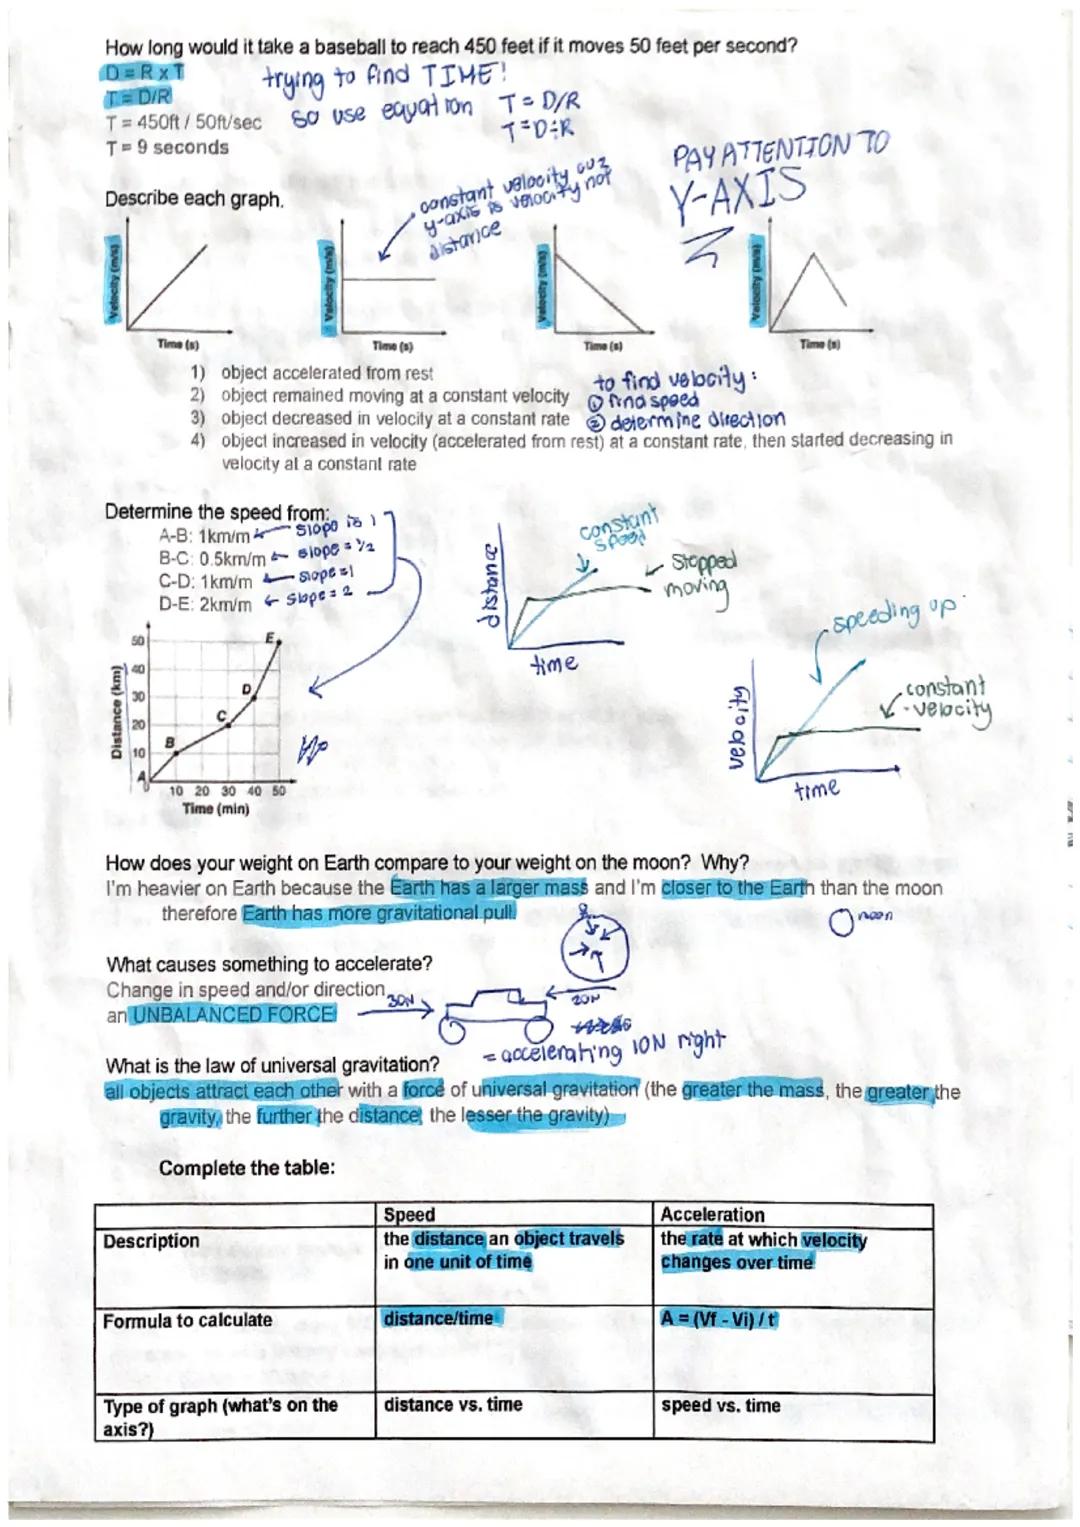 How long would it take a baseball to reach 450 feet if it moves 50 feet per second?
D = R x T
trying to find TIME!
T = D/R
so use equation T = D/R
T = 450ft / 50ft/sec
T = D÷R
T = 9 seconds
PAY ATTENTION TO
Y-AXIS
Describe each graph.
constant velocity cuz
y-axis is velocity not
distance
Velocity (m/s)
Time (s)
Velocity (m/s)
Time (s)
Velocity (m/s)
Time (s)
Velocity (m/s)
Time (s)
1) object accelerated from rest
2) object remained moving at a constant velocity
3) object decreased in velocity at a constant rate
4) object increased in velocity (accelerated from rest) at a constant rate, then started decreasing in
velocity at a constant rate
to find velocity:
① find speed
② determine direction
Determine the speed from:
A-B: 1km/m slope is 1
B-C: 0.5km/m slope = 1/2
C-D: 1km/m slope = 1
D-E: 2km/m slope = 2
Distance (km)
50
40
30
20
10
0
A
B
C
D
E
10 20 30 40 50
Time (min)
distance
constant
speed
stopped
moving
time
velocity
speeding up
constant
velocity
time
How does your weight on Earth compare to your weight on the moon? Why?
I'm heavier on Earth because the Earth has a larger mass and I'm closer to the Earth than the moon
therefore Earth has more gravitational pull.
moon
What causes something to accelerate?
Change in speed and/or direction
an UNBALANCED FORCE
30N
20N
= accelerating 10N right
What is the law of universal gravitation?
all objects attract each other with a force of universal gravitation (the greater the mass, the greater the
gravity, the further the distance, the lesser the gravity)
Complete the table:
Speed
Acceleration
Description
the distance an object travels
in one unit of time
the rate at which velocity
changes over time
Formula to calculate
distance/time
A = (Vf - Vi) / t
Type of graph (what's on the
axis?)
distance vs. time
speed vs. time